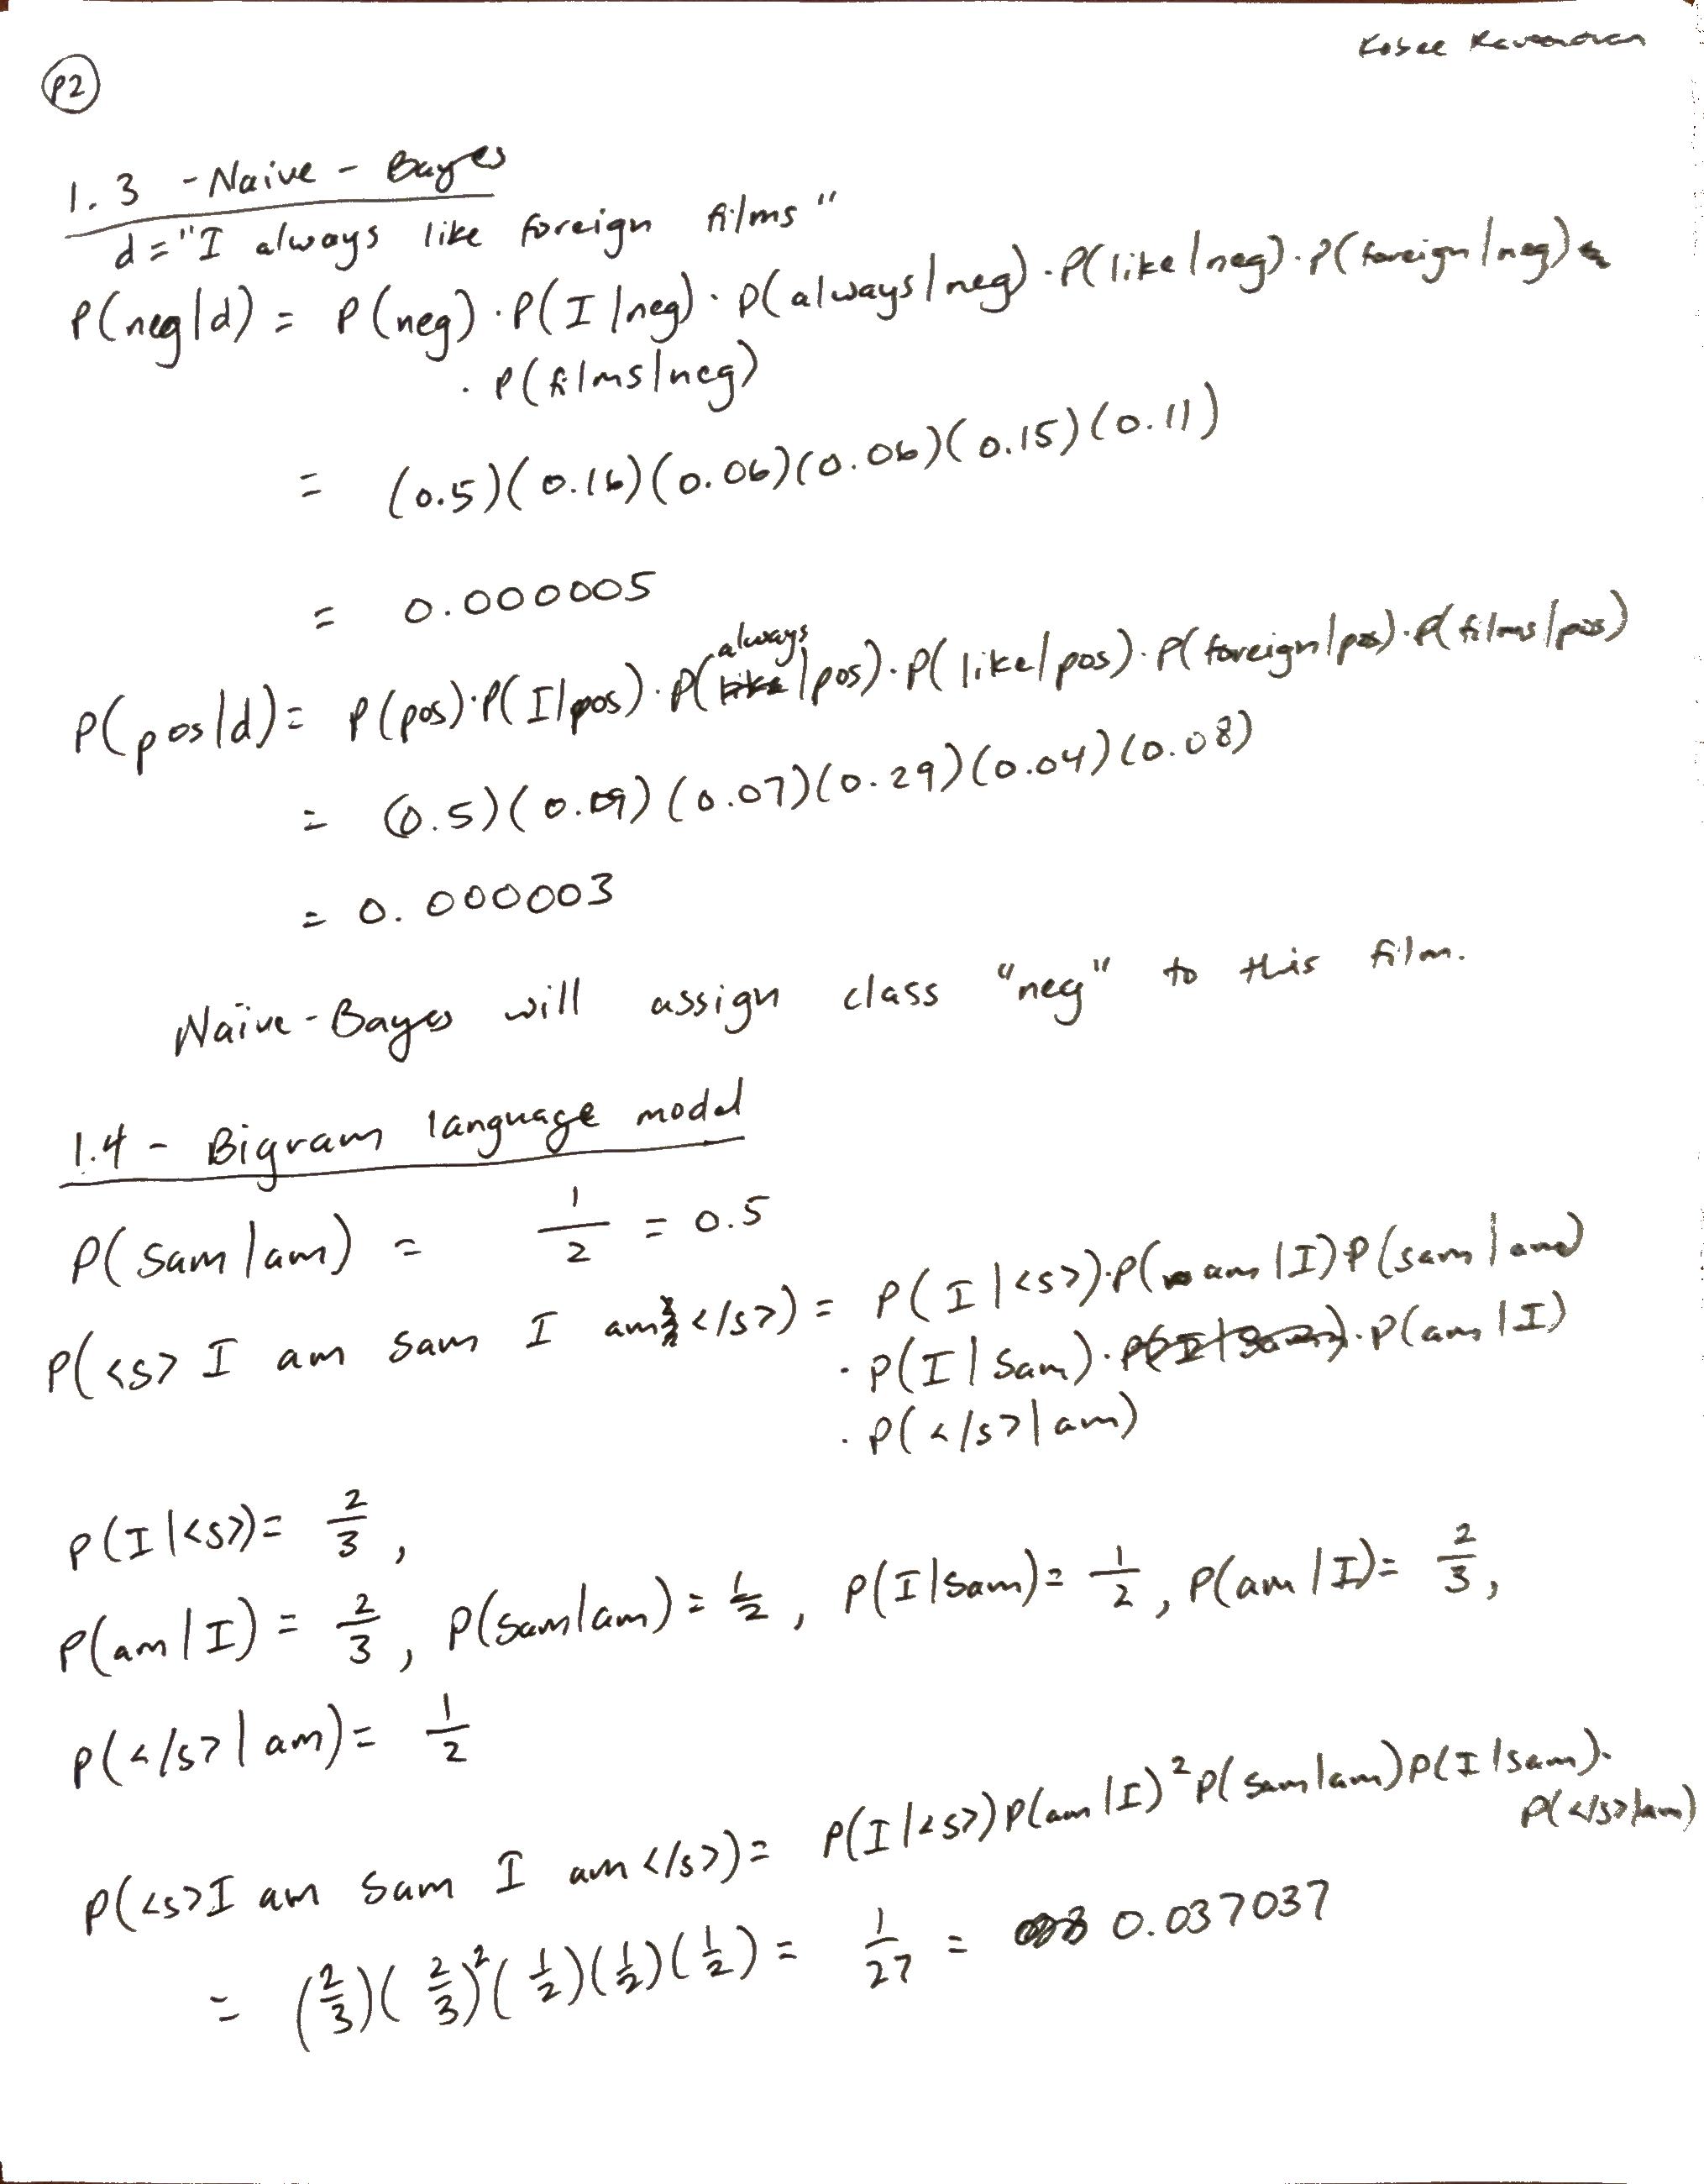 P2
1.3 - Naive - Bayes
d = "I always like foreign films"
P(neg|d) = P(neg) · P(I|neg) · P(always|neg) · P(like|neg) · P(foreign|neg)
· P(films|neg)
= (0.5)(0.16)(0.06)(0.06)(0.15)(0.11)
= 0.000005
always
P(pos|d) = P(pos) · P(I|pos) · P(like|pos) · P(like|pos) · P(foreign|pos) · P(films|pos)
= (0.5)(0.09)(0.07)(0.29)(0.04)(0.08)
= 0.000003
Naïve-Bayes will assign class "neg" to this film.
1.4 - Bigram language model
P(Sam|am) = 1/2 = 0.5
P(<s> I am Sam I am </s>) = P(I|<s>) · P(am|I) P(Sam|am)
· P(I|Sam) · P(I|Sam) · P(am|I)
· P(</s>|am)
P(I|<s>) = 2/3,
P(am|I) = 2/3, P(Sam|am) = 1/2, P(I|Sam) = 1/2, P(am|I) = 2/3,
P(</s>|am) = 1/2
P(<s> I am Sam I am </s>) = P(I|<s>) P(am|I)² P(Sam|am) P(I|Sam) ·
P(</s>|am)
= (2/3)(2/3)²(1/2)(1/2)(1/2) = 1/27 = 0.037037